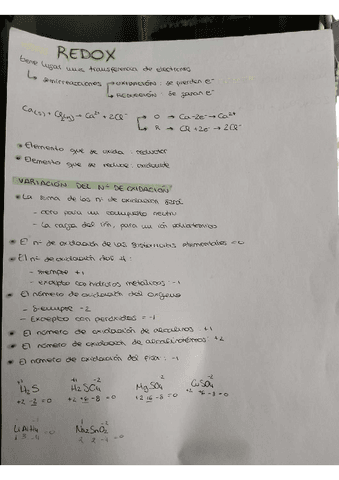 REDOX
tiene lugar una transferencia de electrones
↳ semirreacciones
OXIDACIÓN: se pierden e⁻
REDUCCIÓN: se ganan e⁻
Ca(s) + Cl₂(g) → Ca²⁺ + 2Cl⁻
O → Ca - 2e⁻ → Ca²⁺
R → Cl + 2e⁻ → 2Cl⁻
* Elemento que se oxida: reductor
* Elemento que se reduce: oxidante
VARIACIÓN DEL Nº DE OXIDACIÓN
* La suma de los nº de oxidación será
- cero para un compuesto neutro
- La carga del ión, para un ión
* El nº de oxidación de las sustancias elementales = 0
* El nº de oxidación del H:
- siempre +1
- excepto con hidruros metálicos: -1
* El número de oxidación del oxígeno
- Siempre -2
- Excepto con peróxidos = -1
* El número de oxidación de alcalinos: +1
* El número de oxidación de alcalinotérreos: +2
* El número de oxidación del flúor: -1
H₂S
H₂SO₄
MgSO₄
CuSO₄
+2 -2 = 0
+2 +6 -8 = 0
+2 +6 -8 = 0
LiAlH₄